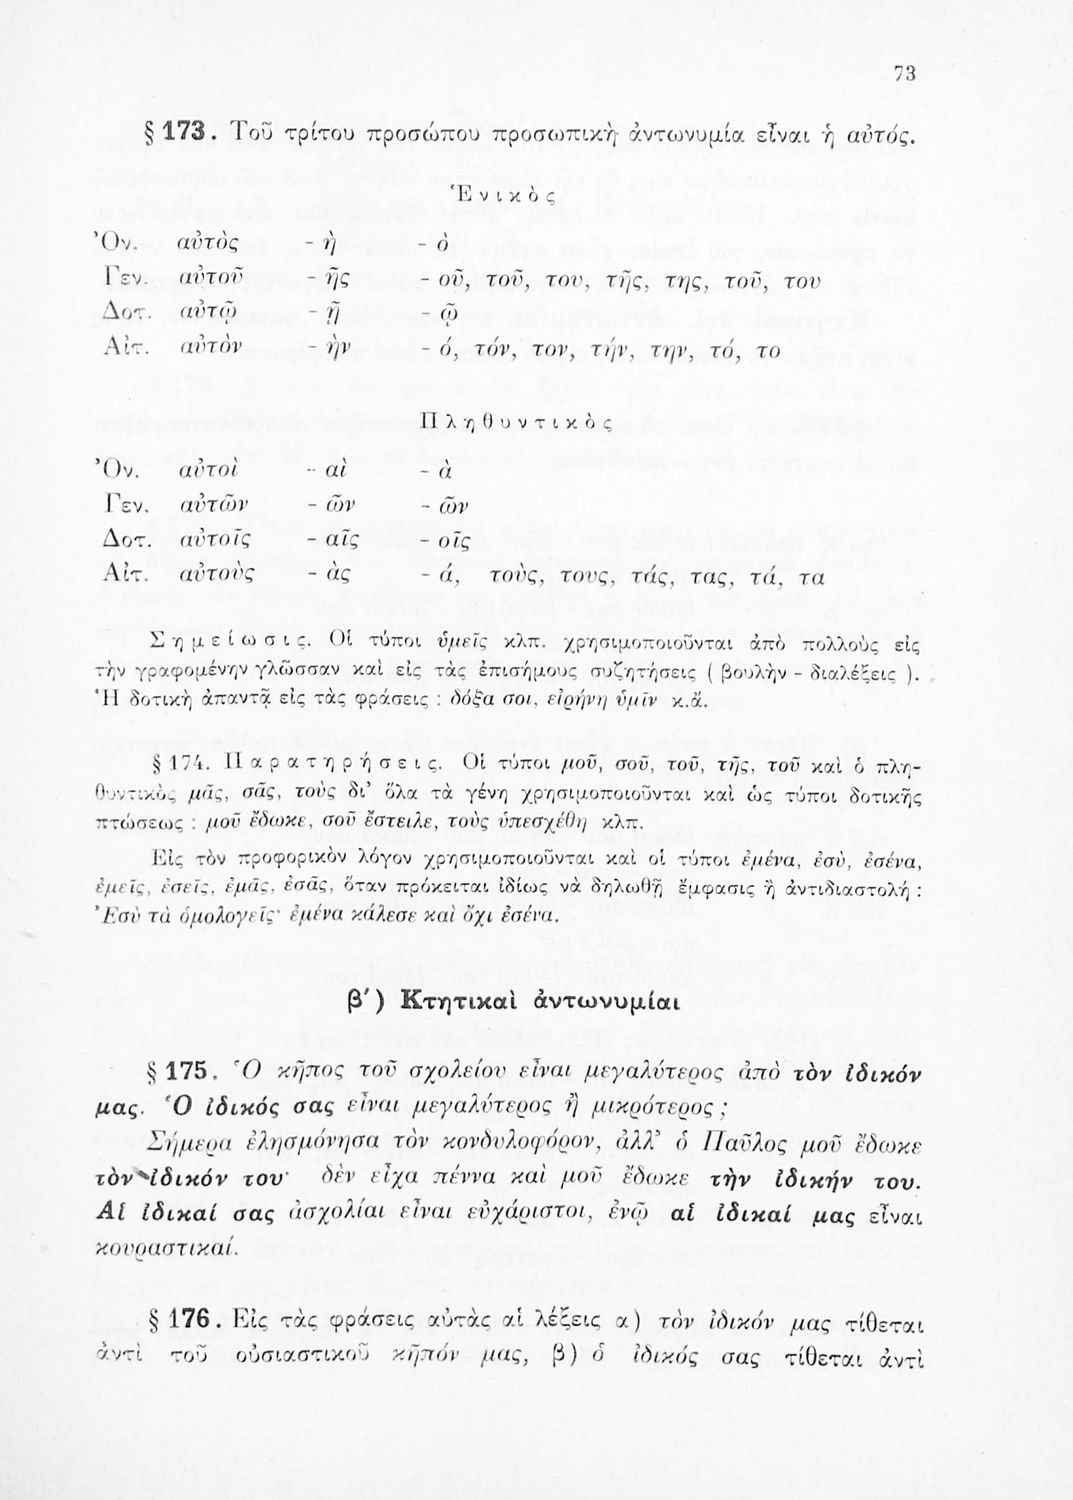 73
§ 173. Τοῦ τρίτου προσώπου προσωπικὴ ἀντωνυμία εἶναι ἡ αὐτός.
Ἑνικὸς
Ὀν. αὐτὸς - ὴ - ὸ
Γεν. αὐτοῦ - ῆς - οῦ, τοῦ, του, τῆς, της, τοῦ, του
Δοτ. αὐτῷ - ῇ - ῷ
Αἰτ. αὐτὸν - ὴν - ό, τόν, τον, τήν, την, τό, το
Πληθυντικὸς
Ὀν. αὐτοὶ - αὶ - ὰ
Γεν. αὐτῶν - ῶν - ῶν
Δοτ. αὐτοῖς - αῖς - οῖς
Αἰτ. αὐτοὺς - ὰς - ά, τοὺς, τους, τάς, τας, τά, τα
Σημείωσις. Οἱ τύποι ὑμεῖς κλπ. χρησιμοποιοῦνται ἀπὸ πολλοὺς εἰς
τὴν γραφομένην γλῶσσαν καὶ εἰς τὰς ἐπισήμους συζητήσεις ( βουλὴν - διαλέξεις ).
Ἡ δοτικὴ ἀπαντᾷ εἰς τὰς φράσεις : δόξα σοι, εἰρήνη ὑμῖν κ.ἄ.
§ 174. Παρατηρήσεις. Οἱ τύποι μοῦ, σοῦ, τοῦ, τῆς, τοῦ καὶ ὁ πλη-
θυντικὸς μᾶς, σᾶς, τοὺς δι’ ὅλα τὰ γένη χρησιμοποιοῦνται καὶ ὡς τύποι δοτικῆς
πτώσεως : μοῦ ἔδωκε, σοῦ ἔστειλε, τοὺς ὑπεσχέθη κλπ.
Εἰς τὸν προφορικὸν λόγον χρησιμοποιοῦνται καὶ οἱ τύποι ἐμένα, ἐσὺ, ἐσένα,
ἐμεῖς, ἐσεῖς, ἐμᾶς, ἐσᾶς, ὅταν πρόκειται ἰδίως νὰ δηλωθῇ ἔμφασις ἢ ἀντιδιαστολή :
Ἐσὺ τὰ ὁμολογεῖς· ἐμένα κάλεσε καὶ ὄχι ἐσένα.
β′) Κτητικαὶ ἀντωνυμίαι
§ 175. Ὁ κῆπος τοῦ σχολείου εἶναι μεγαλύτερος ἀπὸ τὸν ἰδικόν
μας. Ὁ ἰδικός σας εἶναι μεγαλύτερος ἢ μικρότερος ;
Σήμερα ἐλησμόνησα τὸν κονδυλοφόρον, ἀλλ’ ὁ Παῦλος μοῦ ἔδωκε
τὸν ἰδικόν του· δὲν εἶχα πέννα καὶ μοῦ ἔδωκε τὴν ἰδικήν του.
Αἱ ἰδικαί σας ἀσχολίαι εἶναι εὐχάριστοι, ἐνῷ αἱ ἰδικαί μας εἶναι
κουραστικαί.
§ 176. Εἰς τὰς φράσεις αὐτὰς αἱ λέξεις α) τὸν ἰδικόν μας τίθεται
ἀντὶ τοῦ οὐσιαστικοῦ κῆπόν μας, β) ὁ ἰδικός σας τίθεται ἀντὶ